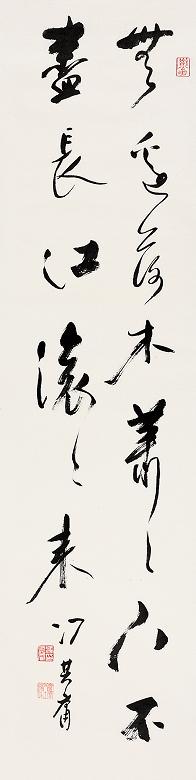 無邊落木蕭〻下不
盡長江滾〻来 冯其庸